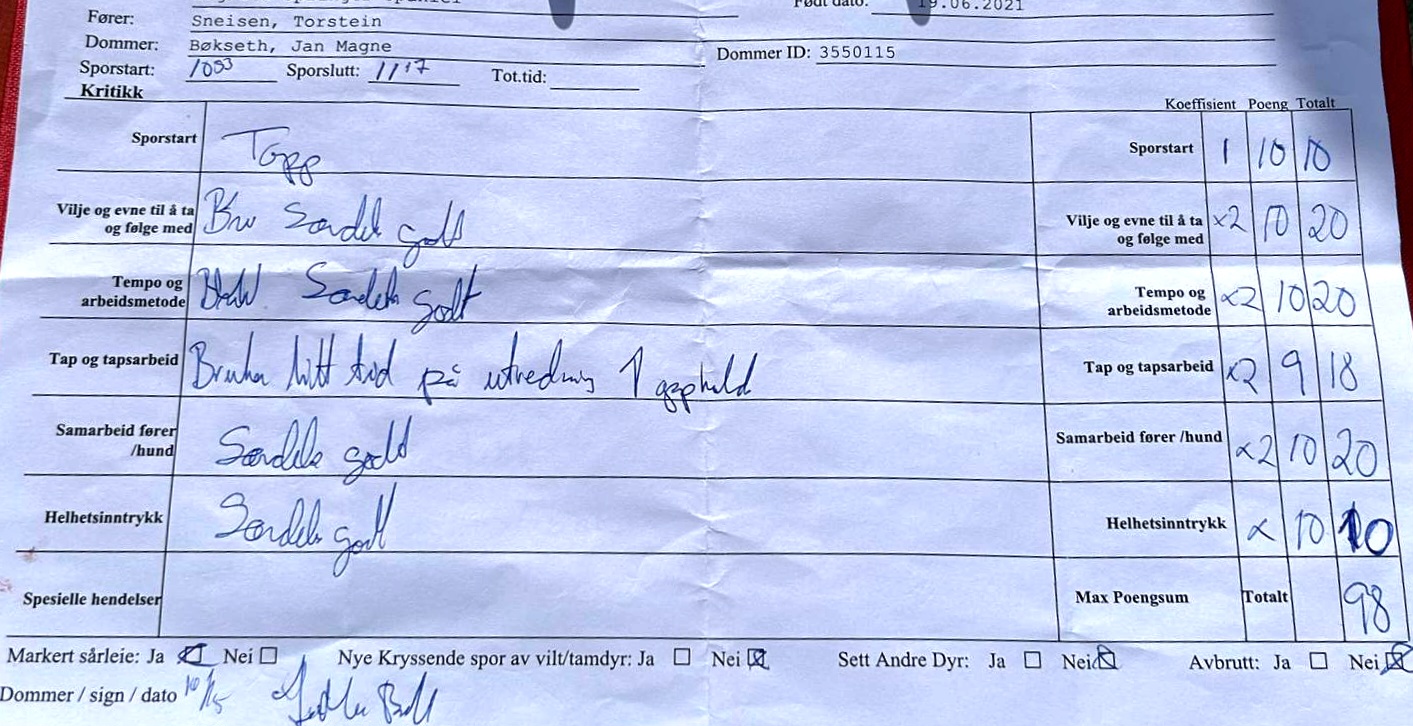 Fører: Sneisen, Torstein
Født dato: 19.06.2021
Dommer: Bøkseth, Jan Magne
Dommer ID: 3550115
Sporstart: 10 03 Sporslutt: 11 17 Tot.tid:
Kritikk
Koeffisient Poeng Totalt
Sporstart Topp Sporstart 1 10 10
Vilje og evne til å ta og følge med Bra Særdeles godt Vilje og evne til å ta og følge med x2 10 20
Tempo og arbeidsmetode Særdeles godt Tempo og arbeidsmetode x2 10 20
Tap og tapsarbeid Bruker litt tid på utredning 1 Tap og tapsarbeid x2 9 18
Samarbeid fører /hund Særdeles godt Samarbeid fører /hund x2 10 20
Helhetsinntrykk Særdeles godt Helhetsinntrykk x 10 10
Spesielle hendelser Max Poengsum Totalt 98
Markert sårleie: Ja Nei Nye Kryssende spor av vilt/tamdyr: Ja Nei Sett Andre Dyr: Ja Nei Avbrutt: Ja Nei
Dommer / sign / dato 10/5